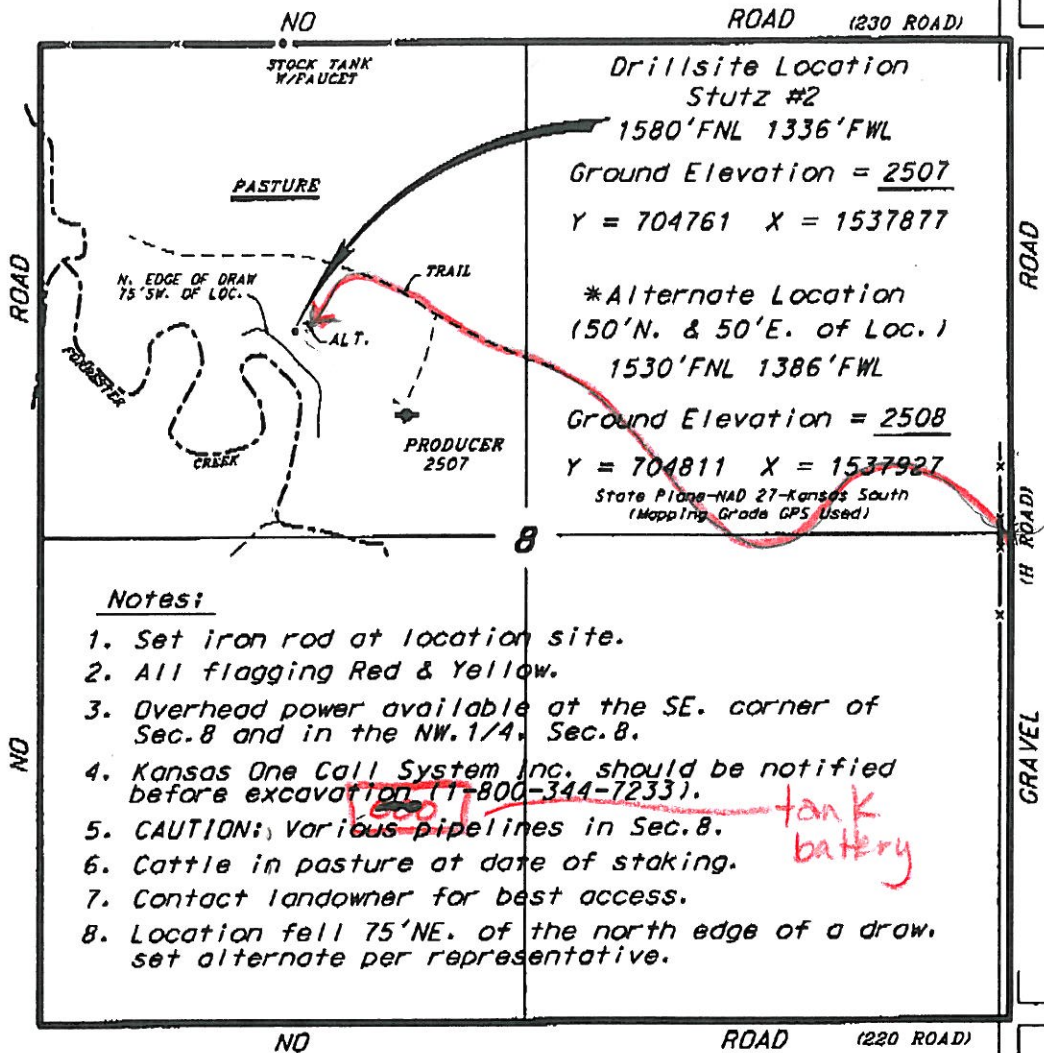 NO ROAD (230 ROAD)
STOCK TANK
W/FAUCET
Drillsite Location
Stutz #2
1580'FNL 1336'FWL
Ground Elevation = 2507
Y = 704761 X = 1537877
PASTURE
ROAD
ROAD
N. EDGE OF DRAW
75'SW. OF LOC.
TRAIL
*Alternate Location
(50'N. & 50'E. of Loc.)
1530'FNL 1386'FWL
ALT.
Ground Elevation = 2508
Y = 704811 X = 1537927
State Plane-NAD 27-Kansas South
(Mapping Grade GPS Used)
PRODUCER
2507
CREEK
8
(H ROAD)
Notes:
1. Set iron rod at location site.
2. All flagging Red & Yellow.
3. Overhead power available at the SE. corner of
Sec.8 and in the NW.1/4, Sec.8.
4. Kansas One Call System Inc. should be notified
before excavation (1-800-344-7233).
5. CAUTION: Various pipelines in Sec.8.
6. Cattle in pasture at date of staking.
7. Contact landowner for best access.
8. Location fell 75'NE. of the north edge of a draw,
set alternate per representative.
tank
battery
NO
GRAVEL
NO ROAD (220 ROAD)